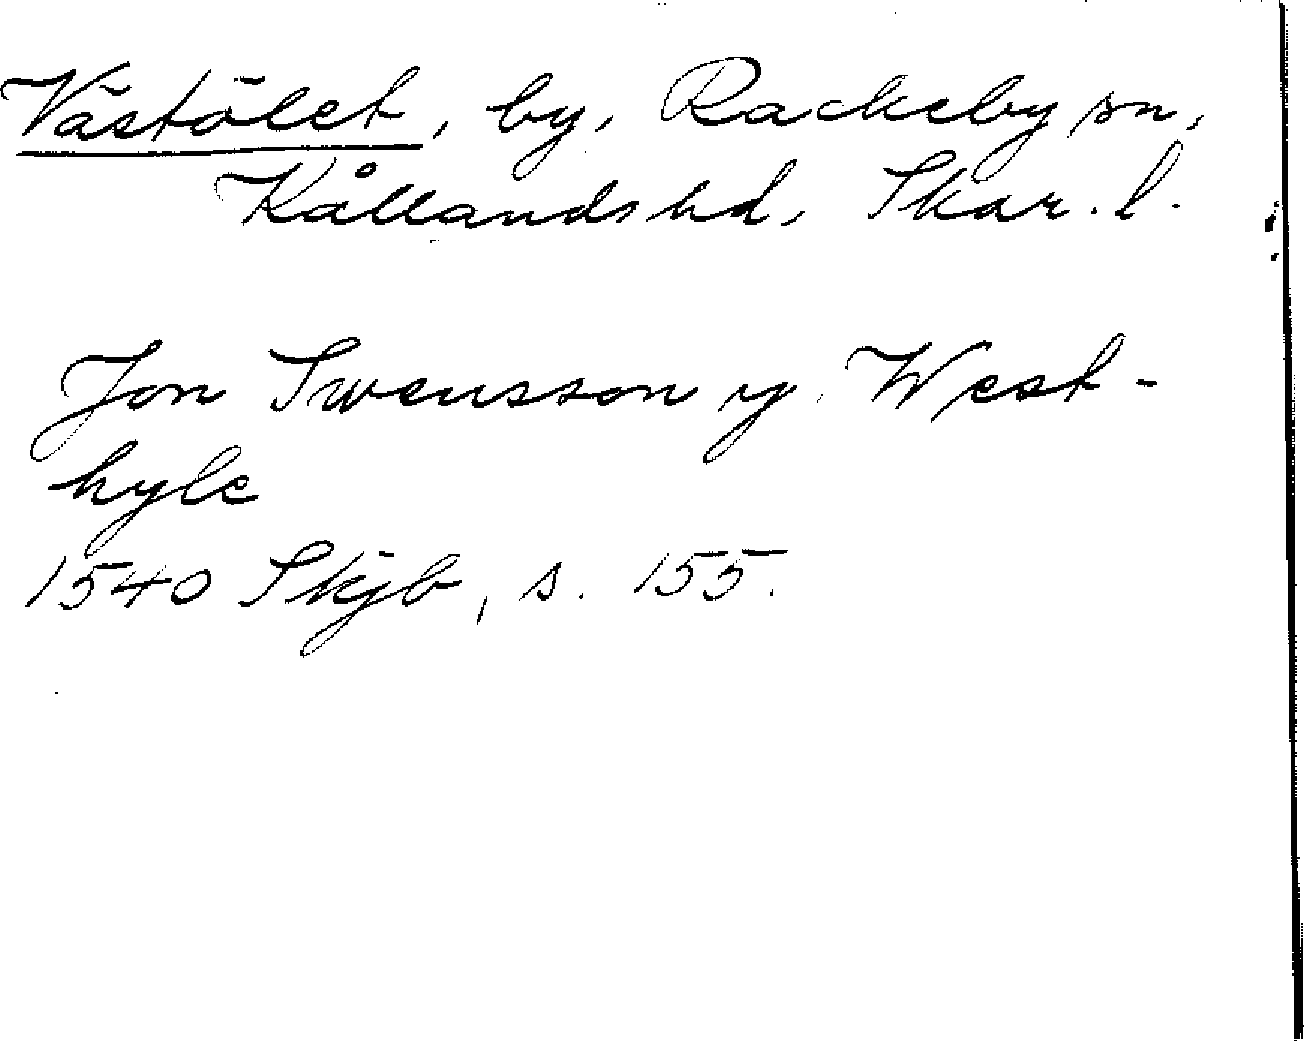 Västölet, by, Rackeby sn,
Kållands hd, Skar. l.
Jon Swensson y West-
hyle
1540 Skjb, s. 155.